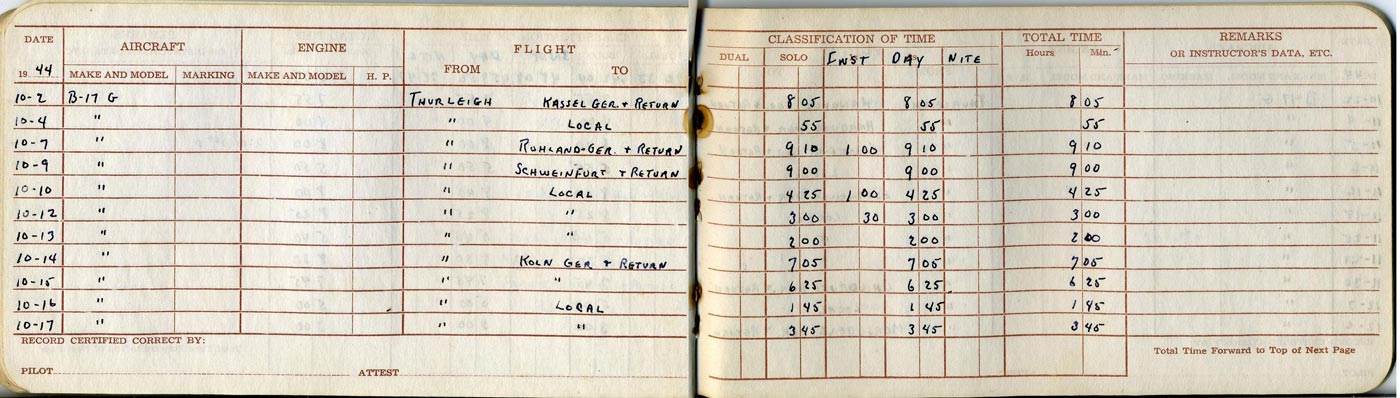 DATE AIRCRAFT ENGINE FLIGHT CLASSIFICATION OF TIME TOTAL TIME REMARKS
1944 MAKE AND MODEL MARKING MAKE AND MODEL H. P. FROM TO DUAL SOLO INST DAY NITE Hours Min. OR INSTRUCTOR'S DATA, ETC.
10-2 B-17 G THURLEIGH KASSEL GER. + RETURN 8 05 8 05 8 05
10-4 " " LOCAL 55 55 55
10-7 " " RUHLAND-GER. + RETURN 9 10 1 00 9 10 9 10
10-9 " " SCHWEINFURT + RETURN 9 00 9 00 9 00
10-10 " " LOCAL 4 25 1 00 4 25 4 25
10-12 " " " 3 00 30 3 00 3 00
10-13 " " " 2 00 2 00 2 00
10-14 " " KOLN GER + RETURN 7 05 7 05 7 05
10-15 " " " 6 25 6 25 6 25
10-16 " " LOCAL 1 45 1 45 1 45
10-17 " " " 3 45 3 45 3 45
RECORD CERTIFIED CORRECT BY:
Total Time Forward to Top of Next Page
PILOT ATTEST